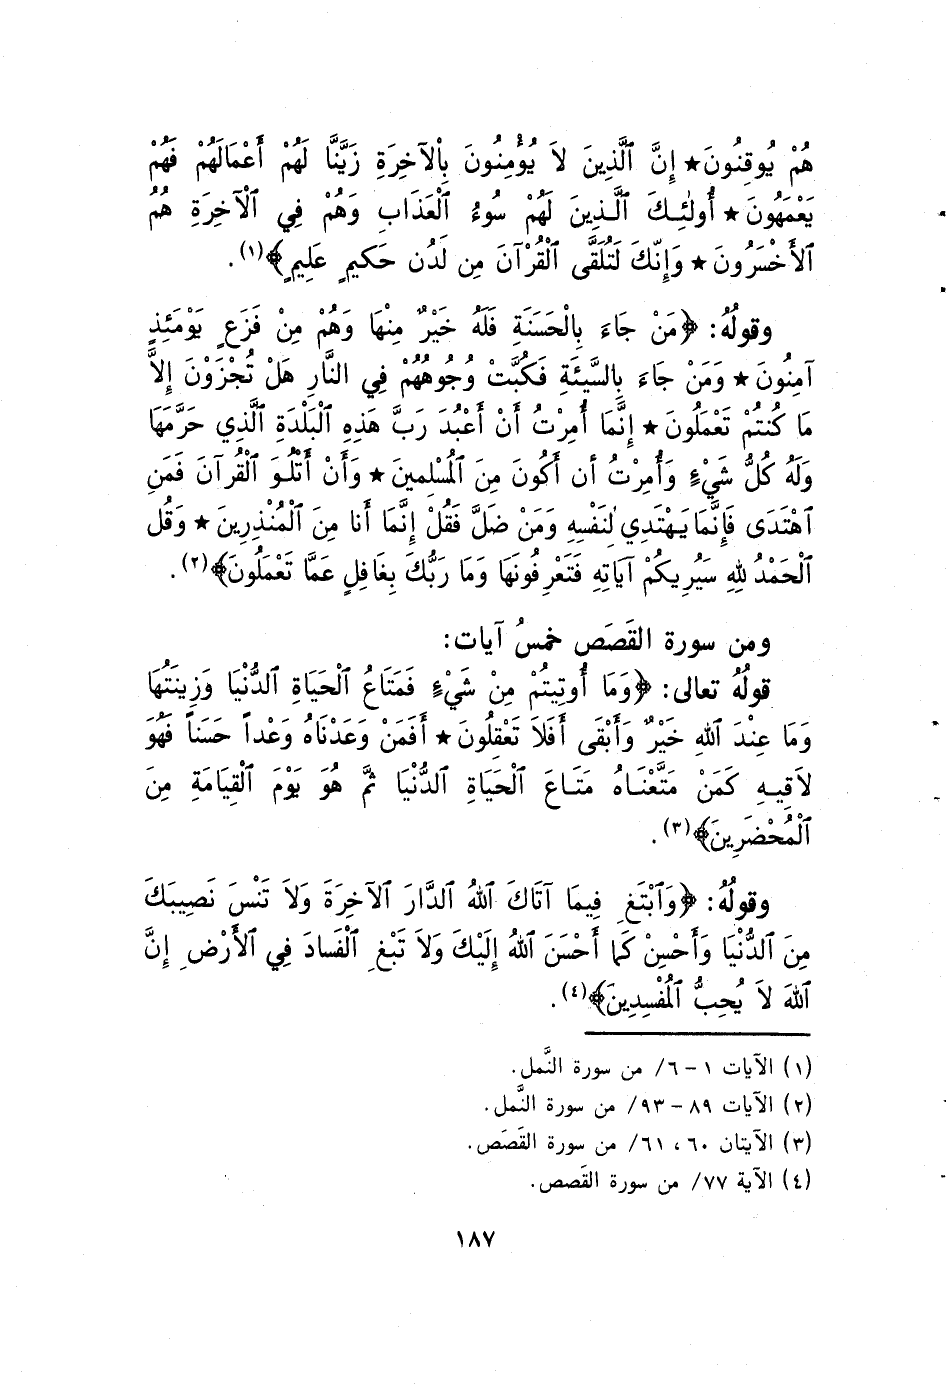 هُمْ يُوقِنُونَ★ إِنَّ ٱلَّذِينَ لاَ يُؤْمِنُونَ بِٱلآخِرَةِ زَيَّنَّا لَهُمْ أَعْمَالَهُمْ فَهُمْ
يَعْمَهُونَ★ أُولٰئِـكَ ٱلَّـذِينَ لَهُمْ سُوءُ ٱلْعَذَابِ وَهُمْ فِي ٱلْآخِرَةِ هُمُ
ٱلأَخْسَرُونَ★ وَإِنَّكَ لَتُلَقَّى ٱلْقُرْآنَ مِن لَدُن حَكيمٍ عَلِيمٍ﴾(١).
وقولُهُ: ﴿مَنْ جَاءَ بِالْحَسَنَةِ فَلَهُ خَيْرٌ مِنْهَا وَهُمْ مِنْ فَزَعٍ يَوْمَئِذٍ
آمِنُونَ★ وَمَنْ جَاءَ بِالسَّيئَةِ فَكُبَّتْ وُجُوهُهُمْ فِي النَّارِ هَلْ تُجْزَوْنَ إِلاَّ
مَا كُنتُمْ تَعْمَلُونَ★ إِنَّمَا أُمِرْتُ أَنْ أَعْبُدَ رَبَّ هَذِهِ ٱلْبَلْدَةِ ٱلَّذِي حَرَّمَهَا
وَلَهُ كُلُّ شَيْءٍ وَأُمِرْتُ أن أَكُونَ مِنَ ٱلْمُسْلِمينَ★ وَأَنْ أَتْلُوَ ٱلْقُرآنَ فَمَنِ
ٱهْتَدَى فَإِنَّمَا يَهْتَدِي لِنَفْسِهِ وَمَنْ ضَلَّ فَقُلْ إِنَّمَا أَنا مِنَ الْمُنْذِرِينَ★ وَقُل
ٱلْحَمْدُ للهِ سَيُرِيكُمْ آيَاتِهِ فَتَعْرِفُونَهَا وَمَا رَبُّكَ بِغَافِلٍ عَمَّا تَعْمَلُونَ﴾(٢).
ومن سورة القَصَصِ خمسُ آيات:
قولُهُ تعالى: ﴿وَمَا أُوتِيتُمْ مِنْ شَيْءٍ فَمَتَاعُ ٱلْحَيَاةِ ٱلدُّنْيَا وَزِينَتُهَا
وَمَا عِنْدَ ٱللهِ خَيْرٌ وَأَبْقَى أَفَلاَ تَعْقِلُونَ★ أَفَمَنْ وَعَدْنَاهُ وَعْداً حَسَناً فَهُوَ
لاَقِيـهِ كَمَنْ مَتَّعْنَـاهُ مَتَـاعَ ٱلْحَيَاةِ ٱلدُّنْيَا ثُمَّ هُوَ يَوْمَ ٱلْقِيَامَةِ مِنَ
ٱلْمُحْضَرِينَ﴾(٣).
وقولُهُ: ﴿وَٱبْتَغِ فِيمَا آتَاكَ ٱللهُ ٱلدَّارَ ٱلآخِرَةَ وَلاَ تَنْسَ نَصِيبَكَ
مِنَ ٱلدُّنْيَا وَأَحْسِنْ كَمَا أَحْسَنَ ٱللهُ إِلَيْكَ وَلاَ تَبْغِ ٱلْفَسادَ فِي ٱلأَرْضِ إِنَّ
ٱللهَ لاَ يُحِبُّ ٱلْمُفْسِدِينَ﴾(٤).
(١) الآيات ١ - ٦/ من سورة النَّمل.
(٢) الآيات ٨٩ - ٩٣/ من سورة النَّمل.
(٣) الآيتان ٦٠، ٦١/ من سورة القَصَص.
(٤) الآية ٧٧/ من سورة القَصص.
١٨٧